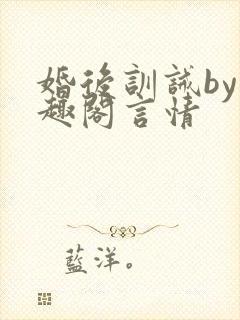 婚後訓誡by
趣閣言情
藍洋。